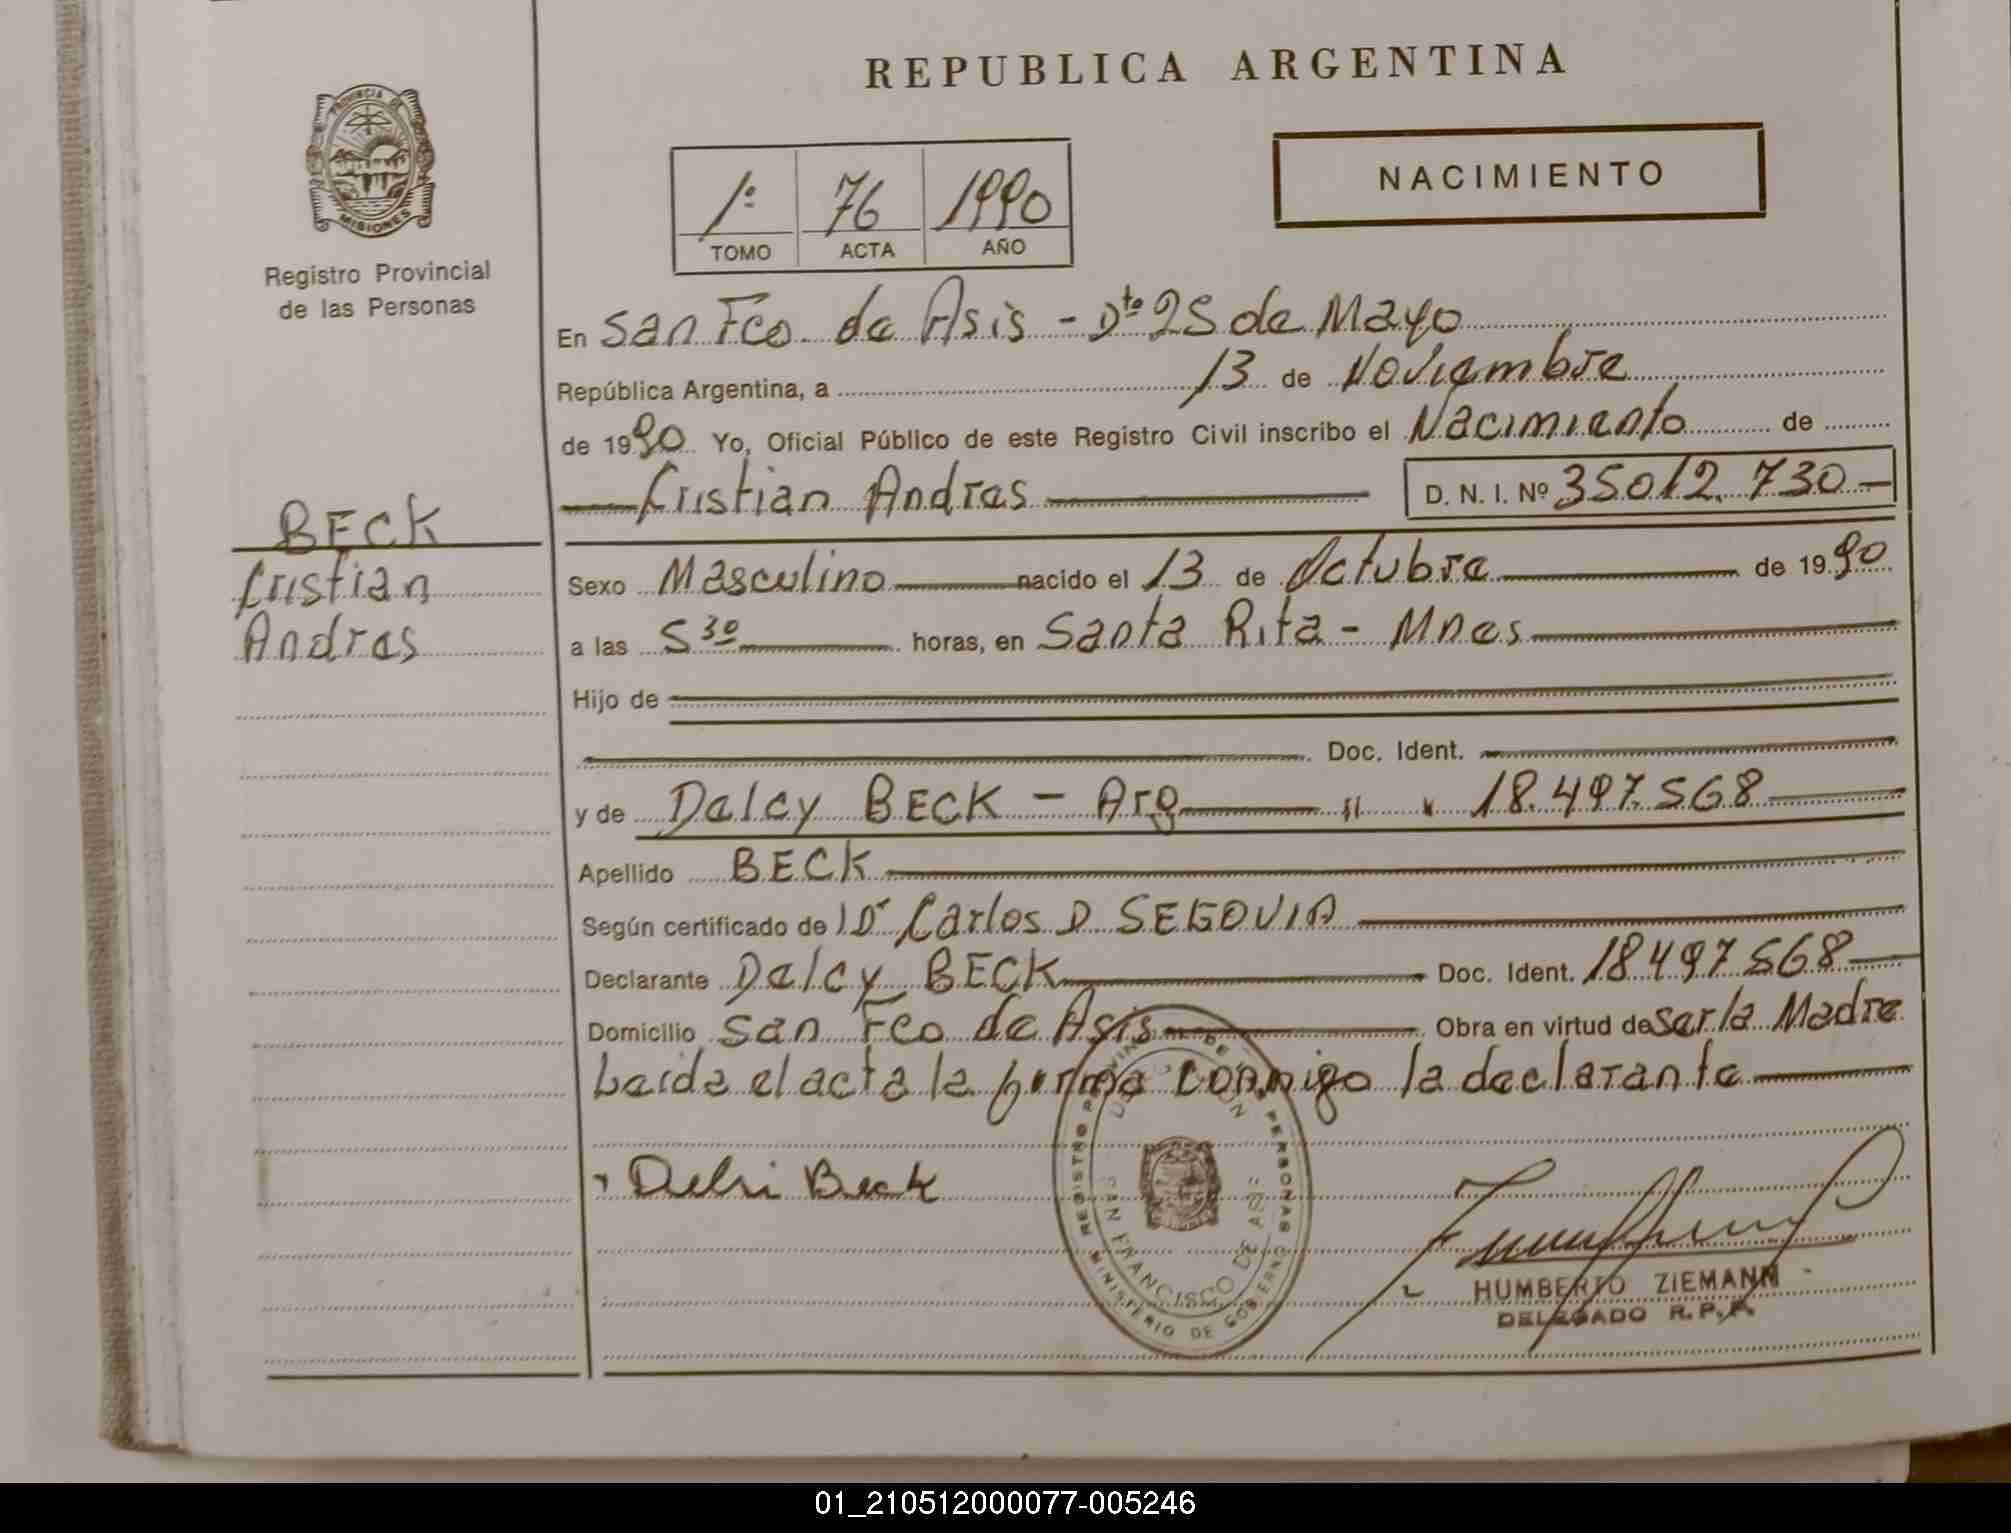 REPUBLICA ARGENTINA
PROVINCIA DE
MISIONES
Registro Provincial
de las Personas
NACIMIENTO
1º 76 1990
TOMO ACTA AÑO
En San Fco. de Asis - Dto 25 de Mayo
República Argentina, a 13 de Noviembre
de 1990 Yo, Oficial Público de este Registro Civil inscribo el Nacimiento de
Cristian Andres D. N. I. Nº 35012.730
BECK
Cristian
Andres
Sexo Masculino nacido el 13 de Octubre de 1990
a las 5 30 horas, en Santa Rita - Mnes
Hijo de
Doc. Ident.
y de Delcy BECK - Arg 18.497.568
Apellido BECK
Según certificado de Dr Carlos D SEGOVIA
Declarante Delcy BECK Doc. Ident. 18497568
Domicilio San Fco de Asis Obra en virtud de ser la Madre
Leida el acta la firma conmigo la declarante
Delsi Beck
REGISTRO PROVINCIAL DE LAS PERSONAS
SAN FRANCISCO DE ASIS
MINISTERIO DE GOBIERNO
HUMBERTO ZIEMANN
DELEGADO R.P.P.
01_210512000077-005246